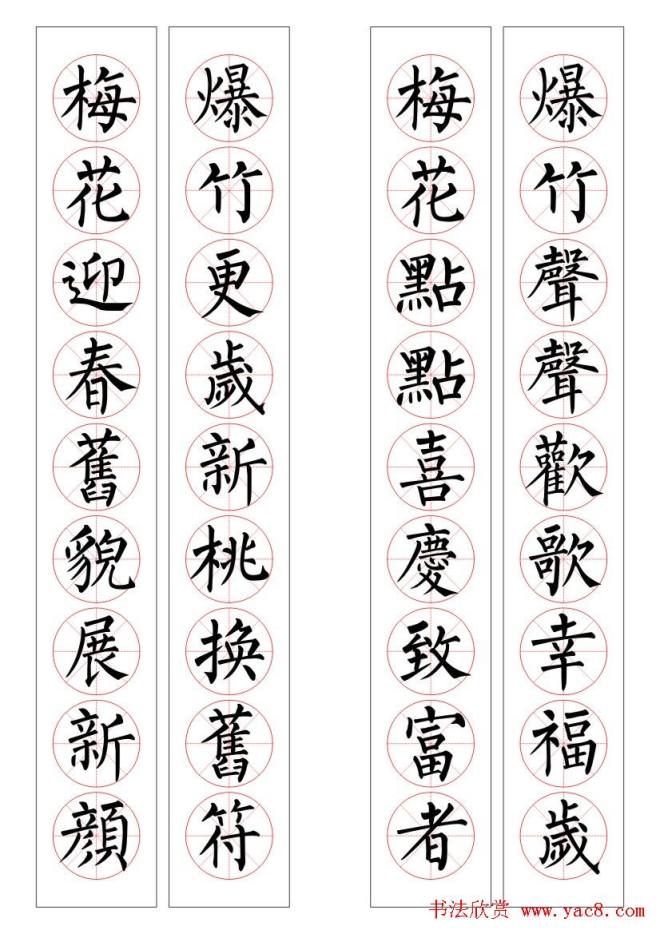 爆竹聲聲歡歌幸福歲
梅花點點喜慶致富者
爆竹更歲新桃換舊符
梅花迎春舊貌展新顔
书法欣赏 www.yac8.com